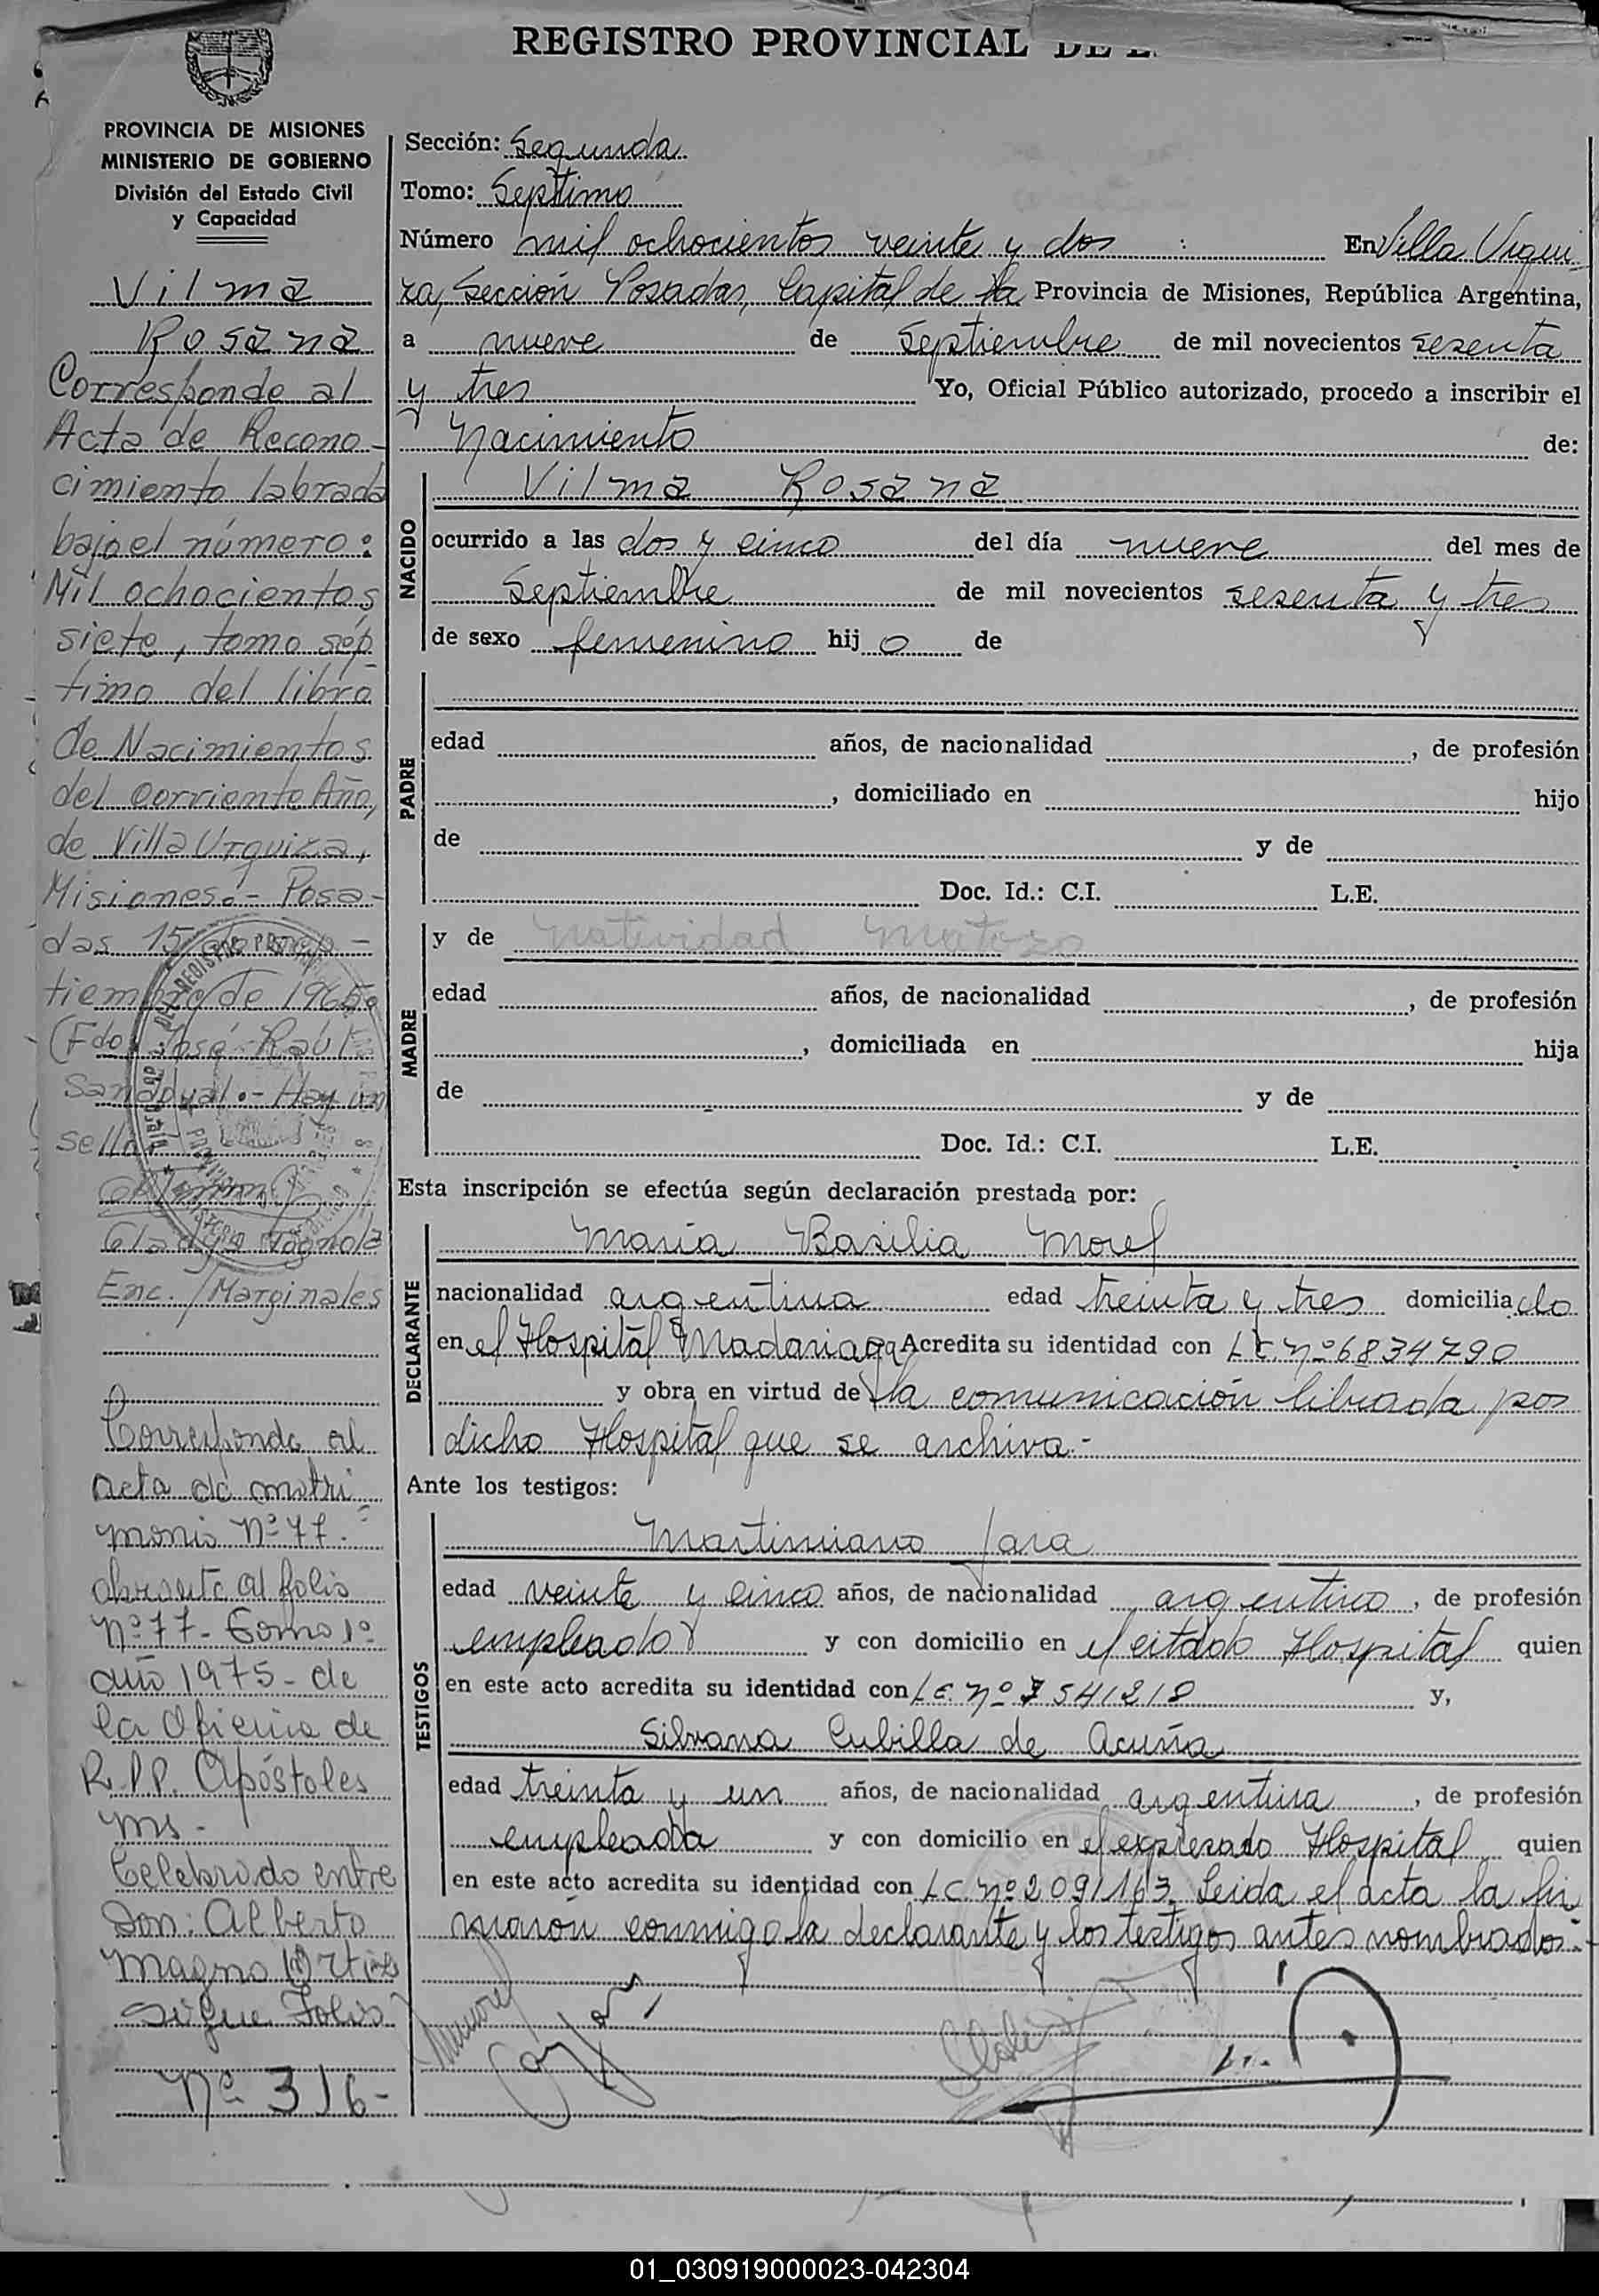 REGISTRO PROVINCIAL DE
PROVINCIA DE MISIONES
MINISTERIO DE GOBIERNO
División del Estado Civil
y Capacidad
Vilma
Rosana
Corresponde al
Acta de Recono-
cimiento labrada
bajo el número:
Mil ochocientos
siete, tomo sép
timo del libro
de Nacimientos
del corriente Año,
de Villa Urquiza,
Misiones.- Posa-
das 15 de sep-
tiembre de 1965
(Fdo) José Raúl
Sandoval.- Hay un
sello
Gladys Tognola
Enc. /Marginales
Corresponde al
acta de matri
monio Nº 77.
obrante al folio
nº 77- Tomo 1º
año 1975- de
la Oficina de
R.P.P. Apóstoles
Ms-
Celebrado entre
Don: Alberto
Magno Ortiz
Sigue Folio
Nº 316-
Sección: Segunda
Tomo: Septimo
Número mil ochocientos veinte y dos En Villa Urqui
za, Sección Posadas, Capital de la Provincia de Misiones, República Argentina,
a nueve de Septiembre de mil novecientos sesenta
y tres Yo, Oficial Público autorizado, procedo a inscribir el
Nacimiento de:
NACIDO
Vilma Rosana
ocurrido a las dos y cinco del día nueve del mes de
Septiembre de mil novecientos sesenta y tres
de sexo femenino hij o de
PADRE
edad años, de nacionalidad , de profesión
, domiciliado en hijo
de y de
Doc. Id.: C.I. L.E.
MADRE
y de Natividad Matozo
edad años, de nacionalidad , de profesión
, domiciliada en hija
de y de
Doc. Id.: C.I. L.E.
Esta inscripción se efectúa según declaración prestada por:
DECLARANTE
Maria Basilia Morel
nacionalidad argentina edad treinta y tres domicilia do
en el Hospital Madariaga Acredita su identidad con LC nº 6834790
y obra en virtud de la comunicación librada por
dicho Hospital que se archiva.-
Ante los testigos:
TESTIGOS
Martimiano Jara
edad veinte y cinco años, de nacionalidad argentino, de profesión
empleado y con domicilio en el citado Hospital quien
en este acto acredita su identidad con LE nº 7541218 y,
Silvana Cubilla de Acuña
edad treinta y un años, de nacionalidad argentina, de profesión
empleada y con domicilio en el expresado Hospital quien
en este acto acredita su identidad con LC nº 2091163. Leida el acta la fir
maron conmigo la declarante y los testigos antes nombrados.-
01_030919000023-042304